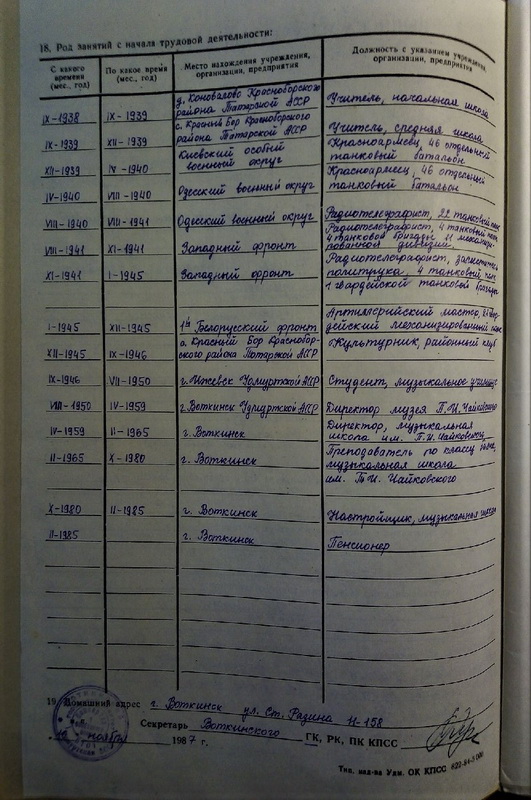 18. Род занятий с начала трудовой деятельности:
С какого времени (мес., год)
По какое время (мес., год)
Место нахождения учреждения, организации, предприятия
Должность с указанием учреждения, организации, предприятия
IX-1938 IX-1939 д. Коновалово Красноборского района Татарской АССР Учитель, начальная школа
IX-1939 XII-1939 с. Красный Бор Красноборского района Татарской АССР Учитель, средняя школа
XII-1939 IV-1940 Киевский особый военный округ Красноармеец, 46 отдельный танковый батальон
IV-1940 VIII-1940 Одесский военный округ Красноармеец, 46 отдельный танковый батальон
VIII-1940 VIII-1941 Одесский военный округ Радиотелеграфист, 22 танковый
VIII-1941 XI-1941 Западный фронт Радиотелеграфист, 4 танковый
4 танковой бригады
дивизии
XI-1941 I-1945 Западный фронт Радиотелеграфист,
политрука, 4 танковый
1 гвардейской танковой
I-1945 XII-1945 1й Белорусский фронт Артиллерийский мастер,
механизированный
XII-1945 IX-1946 с. Красный Бор Красноборского района Татарской АССР Культурник, районный клуб
IX-1946 VII-1950 г. Ижевск Удмуртской АССР Студент, музыкальное училище
VIII-1950 IV-1959 г. Воткинск Удмуртской АССР Директор музея П.И. Чайковского
IV-1959 II-1965 г. Воткинск Директор, музыкальная
школа им. П.И. Чайковского
II-1965 X-1980 г. Воткинск Преподаватель по классу
музыкальная школа
им. П.И. Чайковского
X-1980 II-1985 г. Воткинск Настройщик, музыкальная школа
II-1985 г. Воткинск Пенсионер
19. Домашний адрес г. Воткинск ул. Ст. Разина 11-158
Секретарь Воткинского ГК, РК, ПК КПСС
ноября 1987 г.
Тип. изд-ва Удм. ОК КПСС